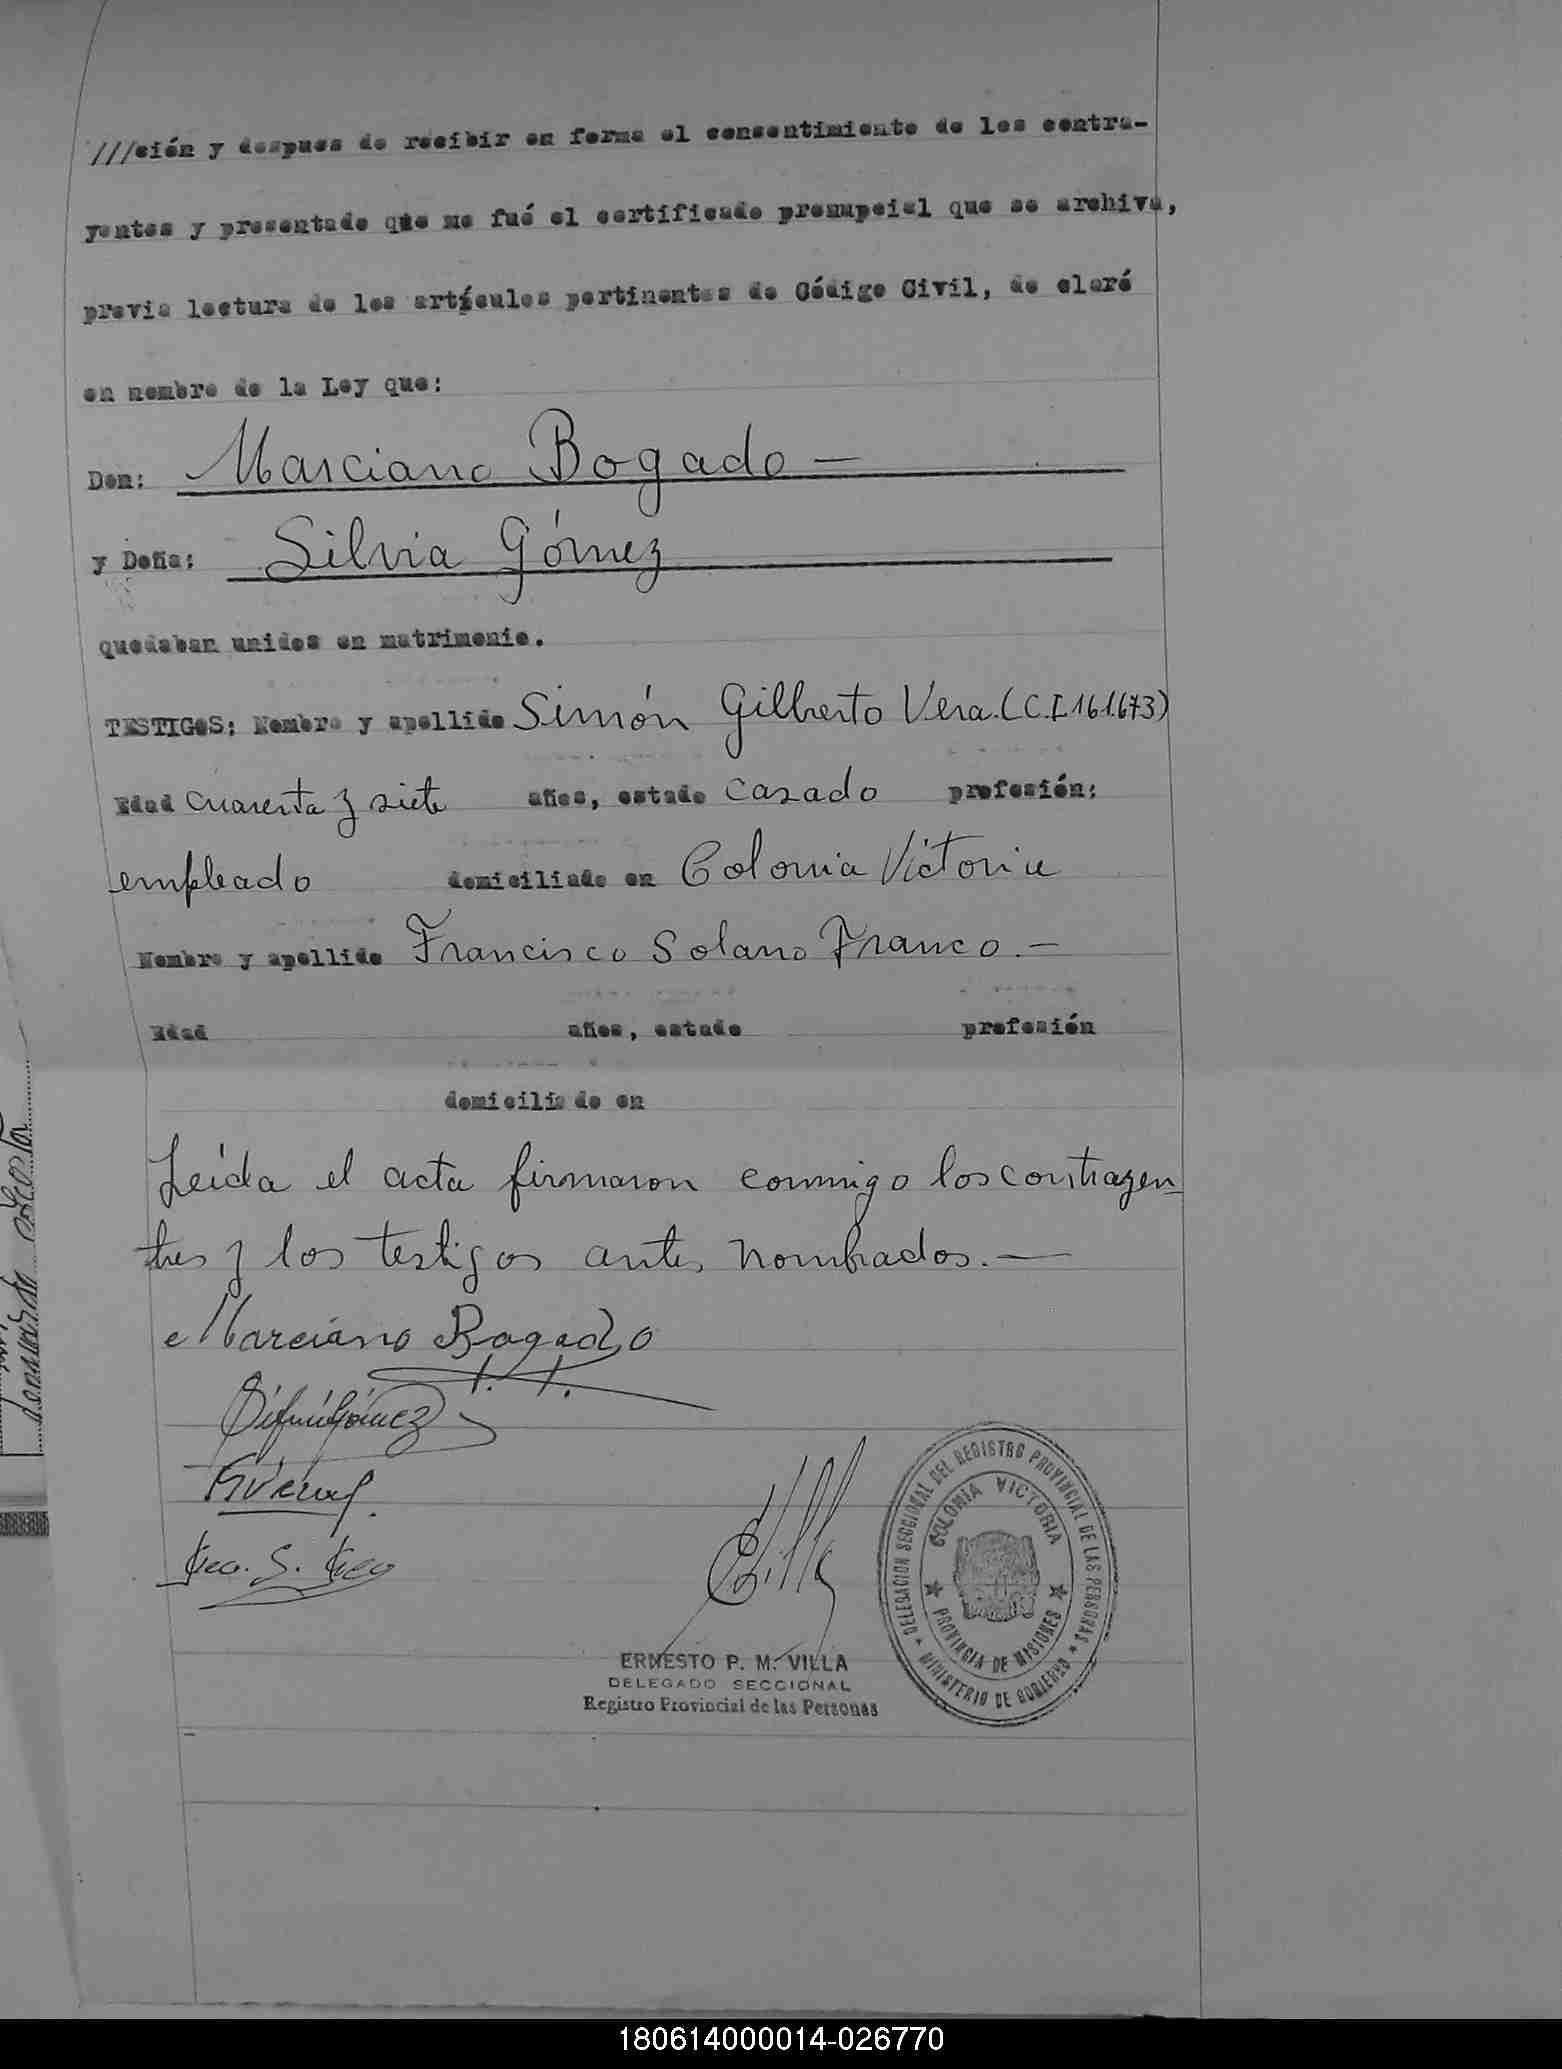 ///ción y despues de recibir en forma el consentimiento de los contra-
yentes y presentado que me fué el certificado prenupcial que se archiva,
previa lectura de los artículos pertinentes de Código Civil, de claré
en nombre de la Ley que:
Don: Marciano Bogado —
y Doña: Silvia Gómez
quedaban unidos en matrimonio.
TESTIGOS: Nombre y apellido Simón Gilberto Vera. (C.I 161.673)
Edad cuarenta y siete años, estado casado profesión:
empleado domiciliado en Colonia Victoria
Nombre y apellido Francisco Solano Franco. —
Edad años, estado profesión
domiciliado en
Leída el acta firmaron conmigo los contrayen-
tes y los testigos antes nombrados. —
Marciano Bogado
Gómez
Fco. S. Fco
ERNESTO P. M. VILLA
DELEGADO SECCIONAL
Registro Provincial de las Personas
DELEGACION SECCIONAL DEL REGISTRO PROVINCIAL DE LAS PERSONAS * MINISTERIO DE GOBIERNO *
COLONIA VICTORIA * PROVINCIA DE MISIONES *
180614000014-026770